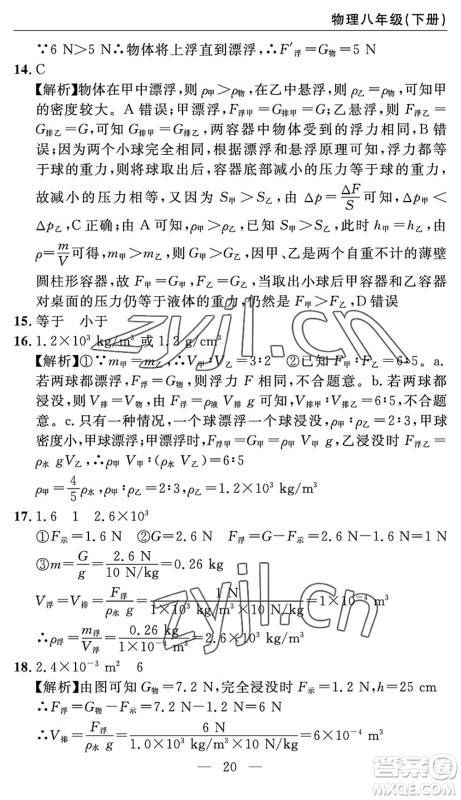 物理八年级(下册)
∵6 N＞5 N∴物体将上浮直到漂浮，∴F′浮＝G物＝5 N
14. C
【解析】物体在甲中漂浮，则 ρ甲＞ρ物，在乙中悬浮，则 ρ乙＝ρ物，可知甲
的密度较大。A 错误；甲漂浮，F浮甲＝G排甲＝G；乙悬浮，则 F浮乙＝
G排乙＝G，可知 G排甲＝G排乙，两容器中物体受到的浮力相同，B 错
误；因为两个小球完全相同，根据漂浮和悬浮原理可知，浮力都等
于球的重力，则将球取出后，容器底部减小的压力等于球的重力，
故减小的压力相等，又因为 S甲＞S乙，由 Δp＝ΔF/S 可知，Δp甲＜
Δp乙，C 正确；由 ρ甲＞ρ乙，S甲＞S乙，此时 h甲＝h乙，由
ρ＝m/V 可得，m甲＞m乙，则 G甲＞G乙，因甲、乙是两个自重不计的薄壁
圆柱形容器，故 F甲＝G甲，F乙＝G乙，当取出小球后甲容器和乙容器
对桌面的压力仍等于液体的重力，仍然是 F甲＞F乙，D 错误
15. 等于　小于
16. 1.2×10³ kg/m³ 或 1.2 g/cm³
【解析】①∵m甲＝m乙∴V甲∶V乙＝3∶2　②已知 F甲∶F乙＝6∶5。a.
若两球都漂浮，则浮力 F浮＝G物，不合题意。b. 若两球都
浸没，则浮力 F浮＝ρ液 V排 g 可知，V甲∶V乙＝6∶5，不合题
意。c. 只有一种情况，一个球漂浮一个球浸没，ρ甲∶ρ乙＝2∶3，甲球
密度小，甲球漂浮∴甲球漂浮时，F浮甲＝G甲＝ρ甲 gV甲，F浮乙＝
ρ水 gV乙，∴ρ甲 V甲 g∶ρ水 V乙 g＝6∶5
ρ甲＝4/5 ρ水，ρ甲∶ρ乙＝2∶3，ρ乙＝1.2×10³ kg/m³
17. 1.6　1　2.6×10³
①F示＝1.6 N　②G＝2.6 N　F浮＝G－F示＝2.6 N－1.6 N＝1 N
③m＝G/g＝2.6 N/10 N/kg＝0.26 kg
V浮＝V排＝F浮/ρ水 g＝1/1×10³ kg/m³×10 N/kg＝1×10⁻⁴ m³
∴ρ浮＝m浮/V浮＝0.26 kg/1×10⁻⁴ m³＝2.6×10³ kg/m³
18. 2.4×10⁻³ m²　6
【解析】由图可知 G物＝7.2 N，完全浸没时 F示＝1.2 N，h＝25 cm
∴F浮＝G物－F示＝7.2 N－1.2 N＝6 N
∴V排＝F浮/ρ水 g＝6 N/1.0×10³ kg/m³×10 N/kg＝6×10⁻⁴ m³
20
zyjl.cn
zyjl.cn